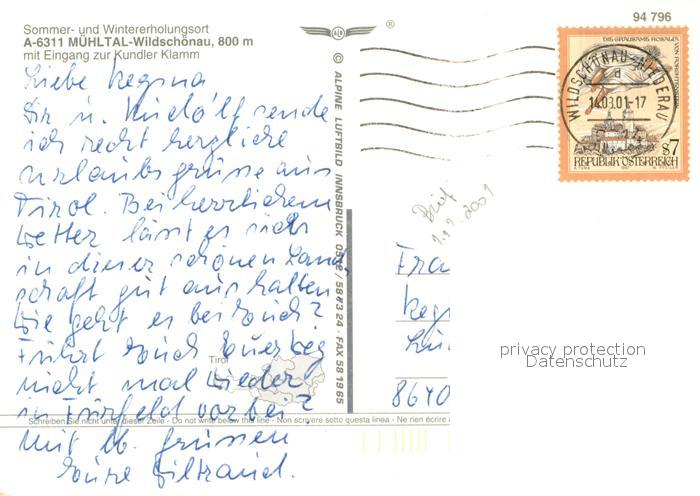 Sommer- und Wintererholungsort
A-6311 MÜHLTAL-Wildschönau, 800 m
mit Eingang zur Kundler Klamm
Liebe Regina
Dir u. Rudolf sende
ich recht herzliche
Urlaubsgrüsse aus
Tirol. Bei herrlichem
Wetter lässt es sich
in dieser schönen Land,
schaft gut aushalten
Wie geht es bei Euch?
Führt Euch Euer Weg
nicht mal wieder
in Fürfeld vorbei?
mit lb. grüssen
Eure Hiltraud.
Tirol
Schreiben Sie nicht unter dieser Zeile - Do not write below this line - Non scrivere sotto questa linea - Ne rien écrire
© ALPINE LUFTBILD INNSBRUCK 0512 / 58 73 24 · FAX 58 19 85
®
94 796
DIE GRAUSAME ROSALIA
VON FORCHTENSTEIN
WILDSCHÖNAU-NIEDERAU
d
14.08.01-17
S7
REPUBLIK ÖSTERREICH
Brief
2001
Fra
Reg
8640
privacy protection
Datenschutz